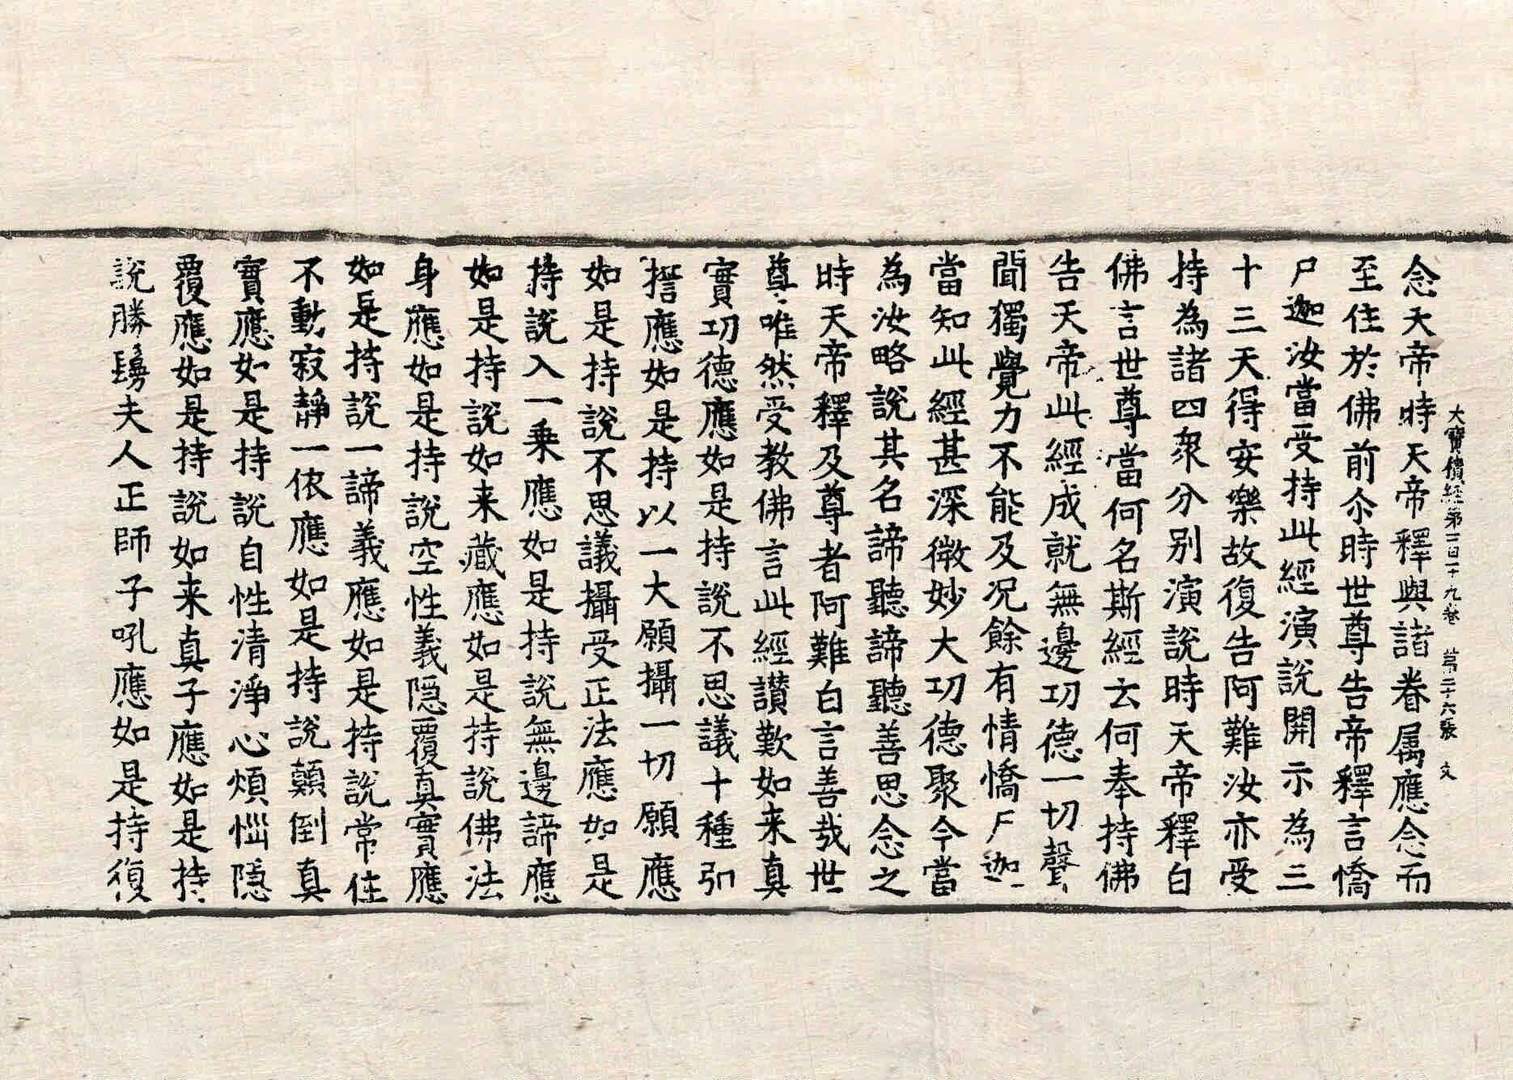 大寶積經第一百一十九卷　第二十六張　文
念天帝時天帝釋與諸眷属應念而
至住於佛前尒時世尊告帝釋言憍
尸迦汝當受持此經演說開示為三
十三天得安樂故復告阿難汝亦受
持為諸四衆分別演說時天帝釋白
佛言世尊當何名斯經云何奉持佛
告天帝此經成就無邊功德一切聲
聞獨覺力不能及况餘有情憍尸迦
當知此經甚深微妙大功德聚今當
為汝略說其名諦聽諦聽善思念之
時天帝釋及尊者阿難白言善哉世
尊唯然受教佛言此經讃歎如来真
實功德應如是持說不思議十種弘
誓應如是持以一大願攝一切願應
如是持說不思議攝受正法應如是
持說入一乗應如是持說無邊諦應
如是持說如来藏應如是持說佛法
身應如是持說空性義隠覆真實應
如是持說一諦義應如是持說常住
不動寂靜一依應如是持說顛倒真
實應如是持說自性清淨心煩惱隠
覆應如是持說如来真子應如是持
說勝鬘夫人正師子吼應如是持復